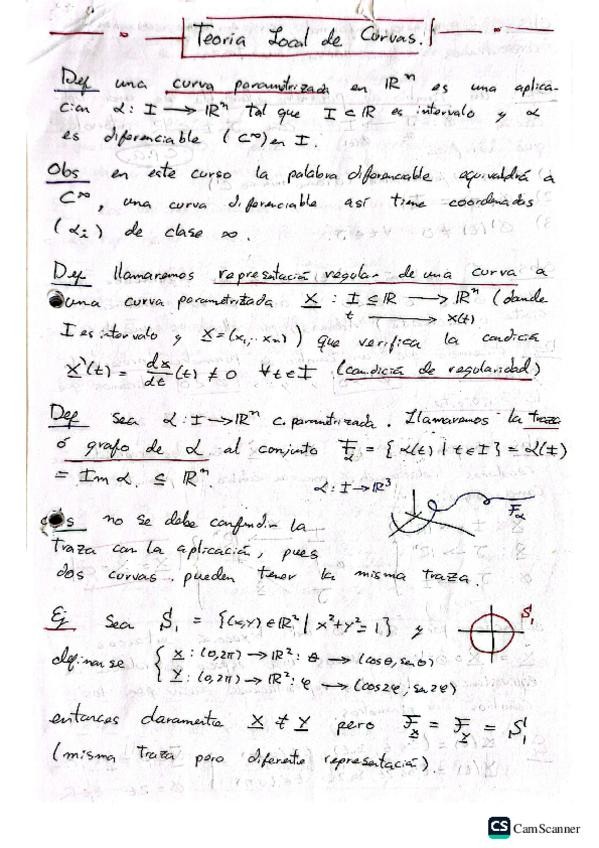 Teoria Local de Curvas.
Def una curva parametrizada en ℝⁿ es una aplica-
cion α: I → ℝⁿ tal que I ⊂ ℝ es intervalo y α
es diferenciable (C∞) en I.
Obs en este curso la palabra diferenciable equivaldrá a
C∞, una curva diferenciable así tiene coordenadas
(αᵢ) de clase ∞.
Def llamaremos representación regular de una curva a
una curva parametrizada X : I ⊆ ℝ → ℝⁿ (donde
t → X(t)
I es intervalo y X = (x₁,.. xₙ)) que verifica la condición
X'(t) = dx/dt (t) ≠ 0 ∀t∈I (condición de regularidad)
Def Sea α: I → ℝⁿ c. parametrizada. Llamaremos la traza
ó grafo de α al conjunto F_α = {α(t) | t∈I} = α(I)
= Im α ⊆ ℝⁿ.
α: I → ℝ³
F_α
s no se debe confundir la
traza con la aplicación, pues
dos curvas pueden tener la misma traza.
Ej Sea S₁ = {(x,y) ∈ ℝ² | x²+y²=1} y
S₁
definanse { X : (0,2π) → ℝ² : θ → (cosθ, senθ)
Y : (0,2π) → ℝ² : φ → (cos2φ, sen2φ)
entonces claramente X ≠ Y pero F_X = F_Y = S₁
(misma traza pero diferente representación).
CS CamScanner